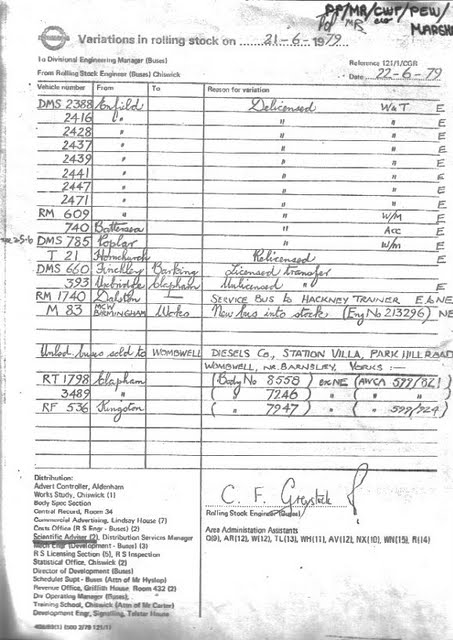 PF/MR/CWF/PEW/
MARSH
Variations in rolling stock on 21-6-1979
To Divisional Engineering Manager (Buses)
From Rolling Stock Engineer (Buses) Chiswick
Reference 121/1/CGR
Date 22-6-79
Vehicle number From To Reason for variation
DMS 2388 Enfield Delicensed W&T E
2416 " " " E
2428 " " " E
2437 " " " E
2439 " " " E
2441 " " " E
2447 " " " E
2471 " " " E
RM 609 " " W/M E
740 Battersea " Acc E
DMS 785 Poplar " W/M E
T 21 Hornchurch Relicensed E
DMS 660 Finchley Barking Licensed transfer E
393 Uxbridge Clapham Unlicensed " E
RM 1740 Dalston — SERVICE BUS to HACKNEY TRAINER E & NE
M 83 MCW BIRMINGHAM Works New bus into stock (Eng No 213296) NE
Unlsd buses sold to WOMBWELL DIESELS Co., STATION VILLA, PARK HILL ROAD
WOMBWELL, NR. BARNSLEY, YORKS :—
RT 1798 Clapham (Body No 8558) ex NE (AWCA 599/821)
3489 " ( " 7246) " ( " "
RF 536 Kingston ( " 7947) " ( " 599/924)
Distribution:
Advert Controller, Aldenham
Works Study, Chiswick (1)
Body Spec Section
Central Record, Room 34
Commercial Advertising, Lindsay House (7)
Costs Office (R S Engr - Buses) (2)
Scientific Adviser (2), Distribution Services Manager
Mech Engr (Development - Buses) (3)
R S Licensing Section (5), R S Inspection
Statistical Office, Chiswick (2)
Director of Development (Buses)
Schedules Supt - Buses (Attn of Mr Hyslop)
Revenue Office, Griffith House, Room 432 (2)
Div Operating Manager (Buses),
Training School, Chiswick (Attn of Mr Carter)
Development Engr, Signalling, Telstar House
C. F. Greystock
Rolling Stock Engineer (Buses)
Area Administation Assistants
Q(9), AR(12), W(12), TL(13), WH(11), AV(12), NX(10), WN(15), R(14)